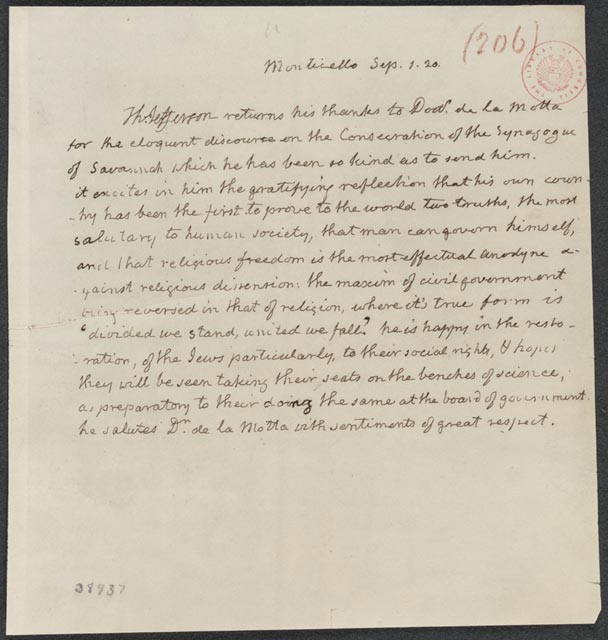 (206)
THE LIBRARY OF CONGRESS
Monticello Sep. 1. 20.
Th: Jefferson returns his thanks to Doctr. de la Motta
for the eloquent discourse on the Consecration of the Synagogue
of Savannah which he has been so kind as to send him.
it excites in him the gratifying reflection that his own coun-
-try has been the first to prove to the world two truths, the most
salutary to human society, that man can govern himself,
and that religious freedom is the most effectual anodyne a-
-gainst religious dissension: the maxim of civil government
being reversed in that of religion, where it's true form is
'divided we stand, united we fall.' he is happy in the resto-
-ration, of the Jews particularly, to their social rights, & hopes
they will be seen taking their seats on the benches of science,
as preparatory to their doing the same at the board of government.
he salutes Dr. de la Motta with sentiments of great respect.
38937